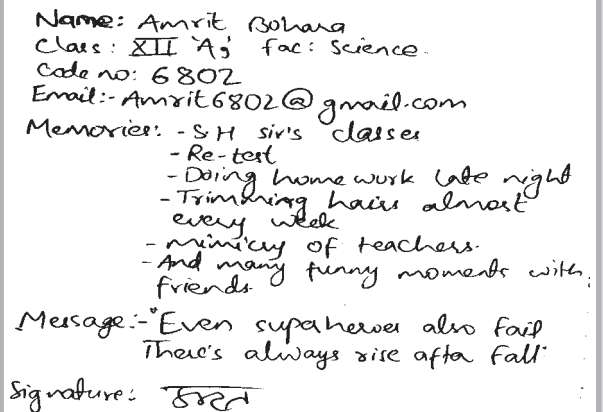 Name: Amrit Bohara
Class: XII 'A3' fac: Science.
Code no: 6802
Email:- Amrit6802@gmail.com
Memories: - S.H sir's classes
- Re-test
- Doing home wurk late night
- Trimming hairs almost
every week
- mimicry of teachers.
- And many funny moments with
friends.
Message:- "Even supaheroes also fail
There's always rise after fall"
Signature: